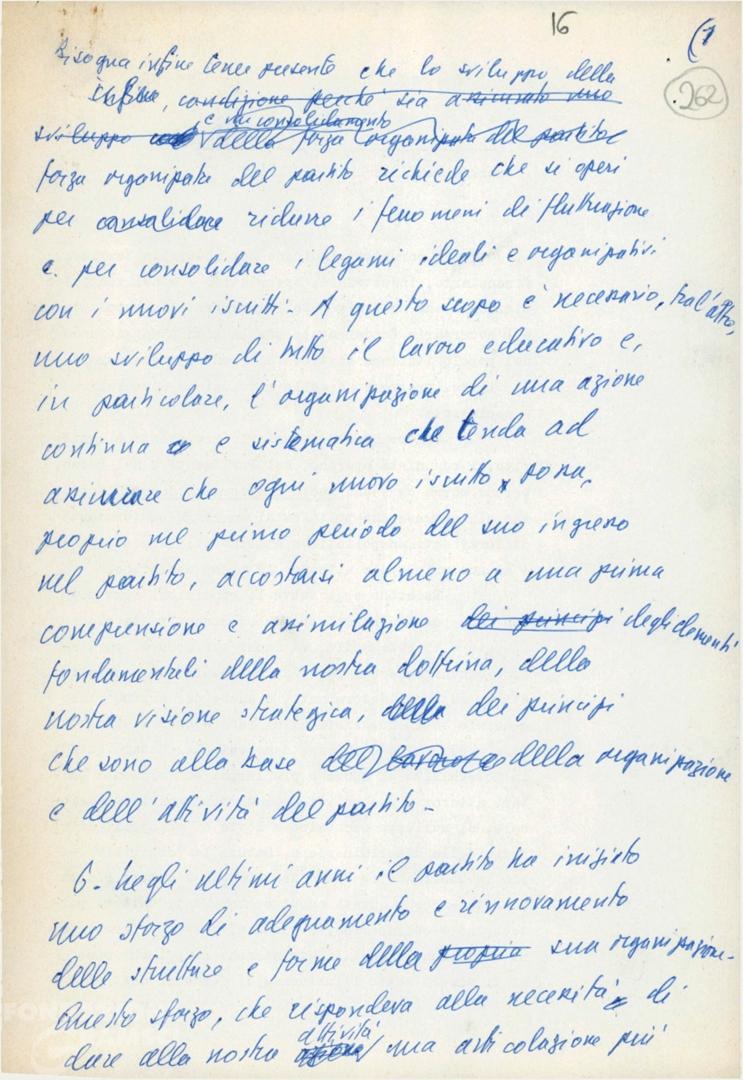 16
(1
262
Bisogna infine tener presente che lo sviluppo della
infine, condizione perché sia assicurato uno
sviluppo e un consolidamento della forza organizzata del partito
forza organizzata del partito richiede che si operi
per consolidare ridurre i fenomeni di fluttuazione
e per consolidare i legami ideali e organizzativi
con i nuovi iscritti - A questo scopo è necessario, tra l'altro,
uno sviluppo di tutto il lavoro educativo e,
in particolare, l'organizzazione di una azione
continua e sistematica che tenda ad
assicurare che ogni nuovo iscritto possa,
proprio nel primo periodo del suo ingresso
nel partito, accostarsi almeno a una prima
comprensione e assimilazione dei principi degli elementi
fondamentali della nostra dottrina, della
nostra visione strategica, della dei principi
che sono alla base della organizzazione
e dell'attività del partito -
6 - Negli ultimi anni il partito ha iniziato
uno sforzo di adeguamento e rinnovamento
delle strutture e forme della propria sua organizzazione -
Questo sforzo, che rispondeva alla necessità di
dare alla nostra azione attività una articolazione più